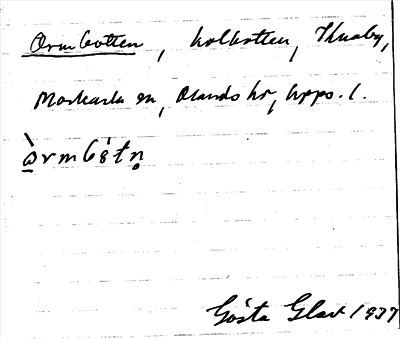 Ormbotten, kolbotten, Thuaby,
Morkarla sn, Olands hr, Upps. l.
ò̱rmbòtn̥
Gösta Glad 1937